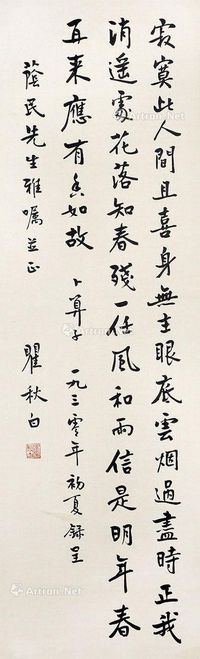 寂寞此人間且喜身無主眼底雲烟過盡時正我
消遙處花落知春殘一任風和雨信是明年春
再来應有香如故
卜算子 一九三零年初夏録呈
蔭民先生雅嘱並正
瞿秋白
Artron.Net
Artron.Net